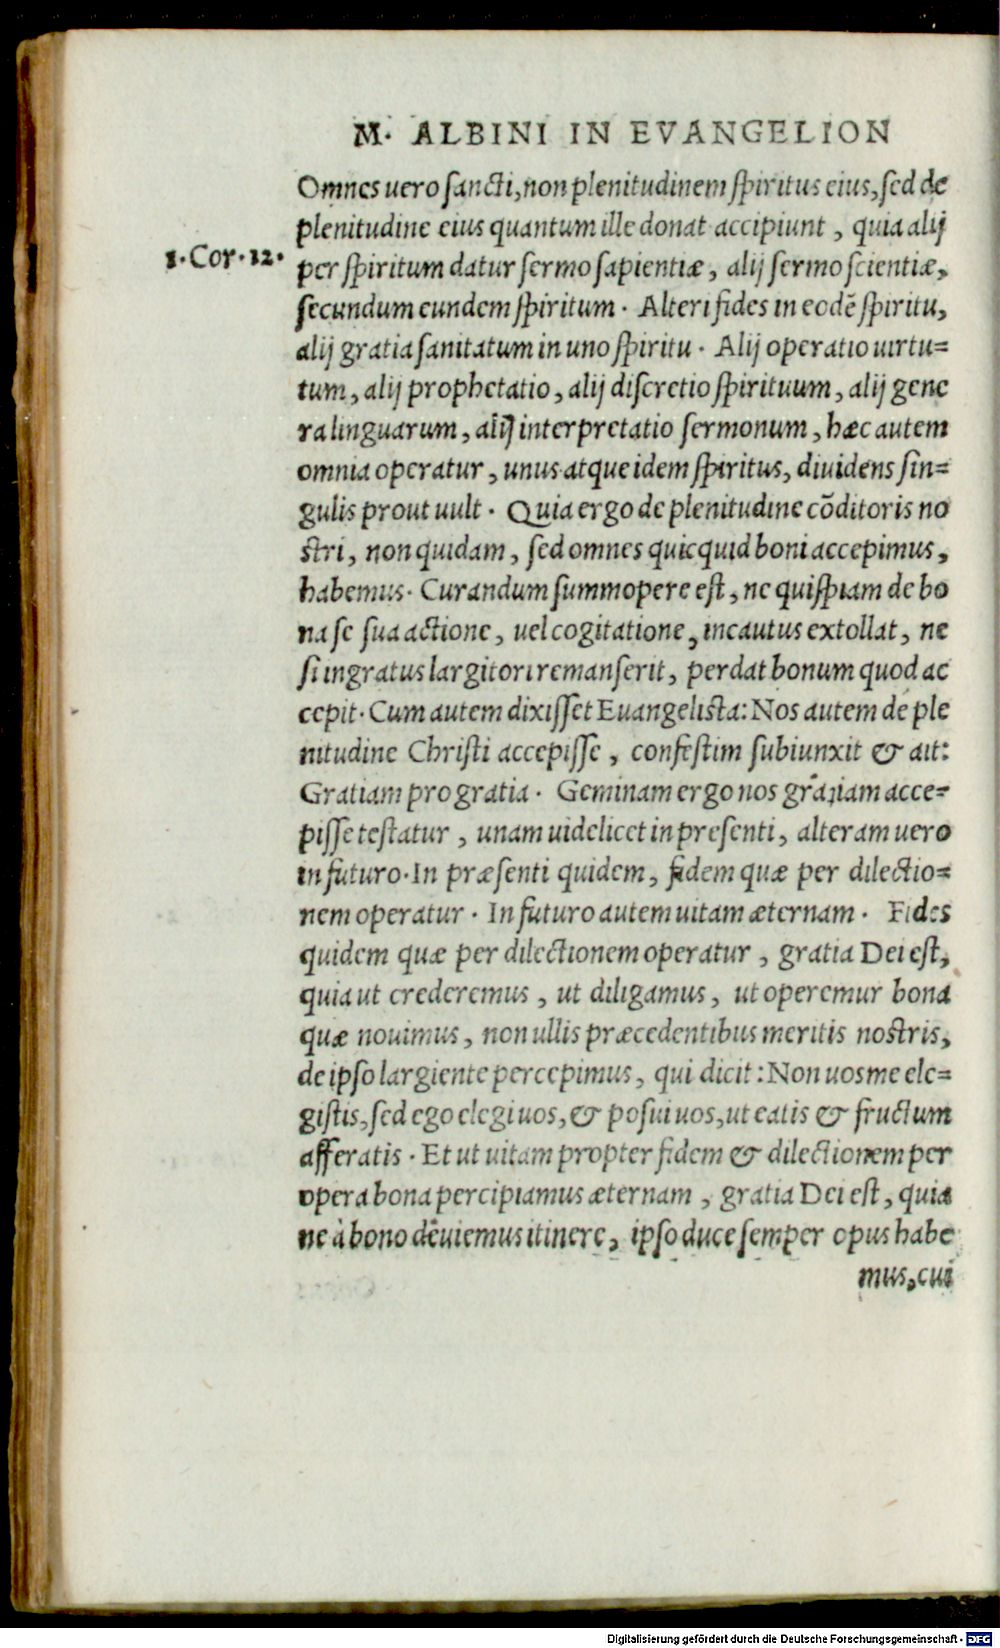 M. ALBINI IN EVANGELION
Omnes uero ſancti, non plenitudinem ſpiritus eius, ſed de
plenitudine eius quantum ille donat accipiunt, quia alij
1. Cor. 12.
per ſpiritum datur ſermo ſapientiæ, alij ſermo ſcientiæ,
ſecundum eundem ſpiritum. Alteri fides in eodē ſpiritu,
alij gratia ſanitatum in uno ſpiritu. Alij operatio uirtu=
tum, alij prophetatio, alij diſcretio ſpirituum, alij gene
ra linguarum, alij interpretatio ſermonum, hæc autem
omnia operatur, unus atque idem ſpiritus, diuidens ſin=
gulis prout uult. Quia ergo de plenitudine cōditoris no
ſtri, non quidam, ſed omnes quicquid boni accepimus,
habemus. Curandum ſummopere eſt, ne quiſpiam de bo
na ſe ſua actione, uel cogitatione, incautus extollat, ne
ſi ingratus largitori remanſerit, perdat bonum quod ac
cepit. Cum autem dixiſſet Euangeliſta: Nos autem de ple
nitudine Chriſti accepiſſe, confeſtim ſubiunxit & ait:
Gratiam pro gratia. Geminam ergo nos gratiam acce=
piſſe teſtatur, unam uidelicet in preſenti, alteram uero
in futuro. In præſenti quidem, fidem quæ per dilectio=
nem operatur. In futuro autem uitam æternam. Fides
quidem quæ per dilectionem operatur, gratia Dei eſt,
quia ut crederemus, ut diligamus, ut operemur bona
quæ nouimus, non ullis præcedentibus meritis noſtris,
de ipſo largiente percepimus, qui dicit: Non uos me ele=
giſtis, ſed ego elegi uos, & poſui uos, ut eatis & fructum
afferatis. Et ut uitam propter fidem & dilectionem per
opera bona percipiamus æternam, gratia Dei eſt, quia
ne à bono deuiemus itinere, ipſo duce ſemper opus habe
mus, cui
Digitalisierung gefördert durch die Deutsche Forschungsgemeinschaft - DFG